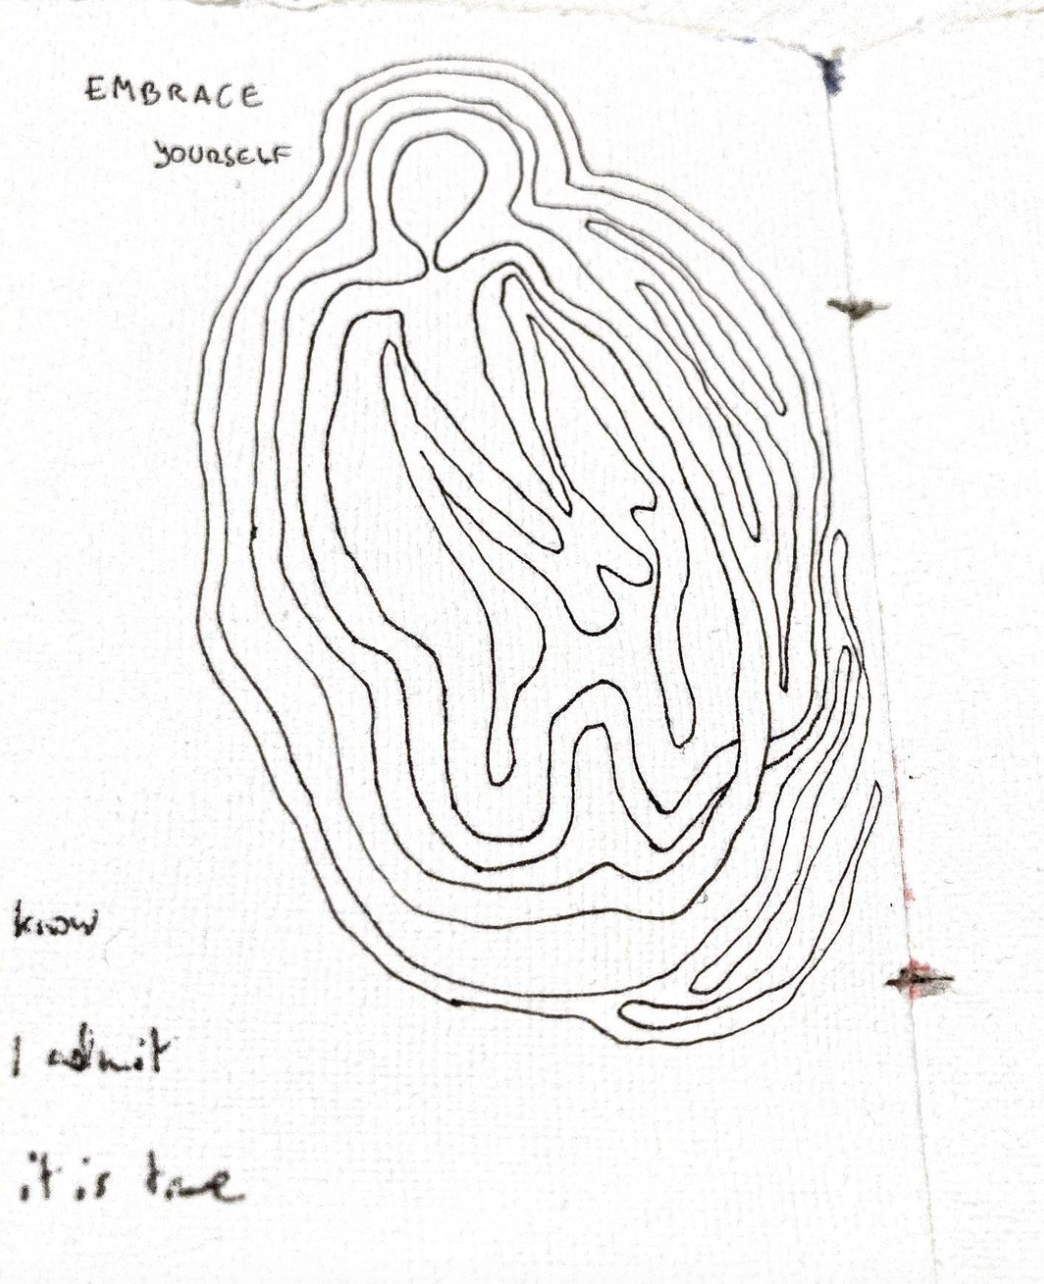 EMBRACE
YOURSELF
know
I admit
it is true